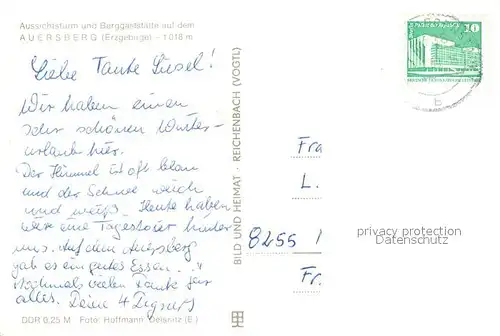 Aussichtsturm und Berggaststätte auf dem
AUERSBERG (Erzgebirge) – 1018 m
Liebe Tante Liesel!
Wir haben einen
sehr schönen Winter-
urlaub hier.
Der Himmel ist oft blau
und der Schnee weich
und weiß. Heute haben
wir eine Tagestour hinter
uns. Auf dem Auersberg
gab es ein gutes Essen...
Nochmals vielen Dank für
alles. Deine 4
DDR 0,25 M Foto: Hoffmann, Oelsnitz (E.)
BILD UND HEIMAT · REICHENBACH (VOGTL)
10
b
Fra
L.
8255
Fr.
privacy protection
Datenschutz